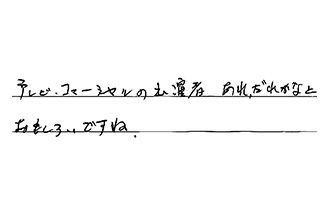 テレビ.コマーシャルの出演者 あれ,だれかなと
おもしろいですね.